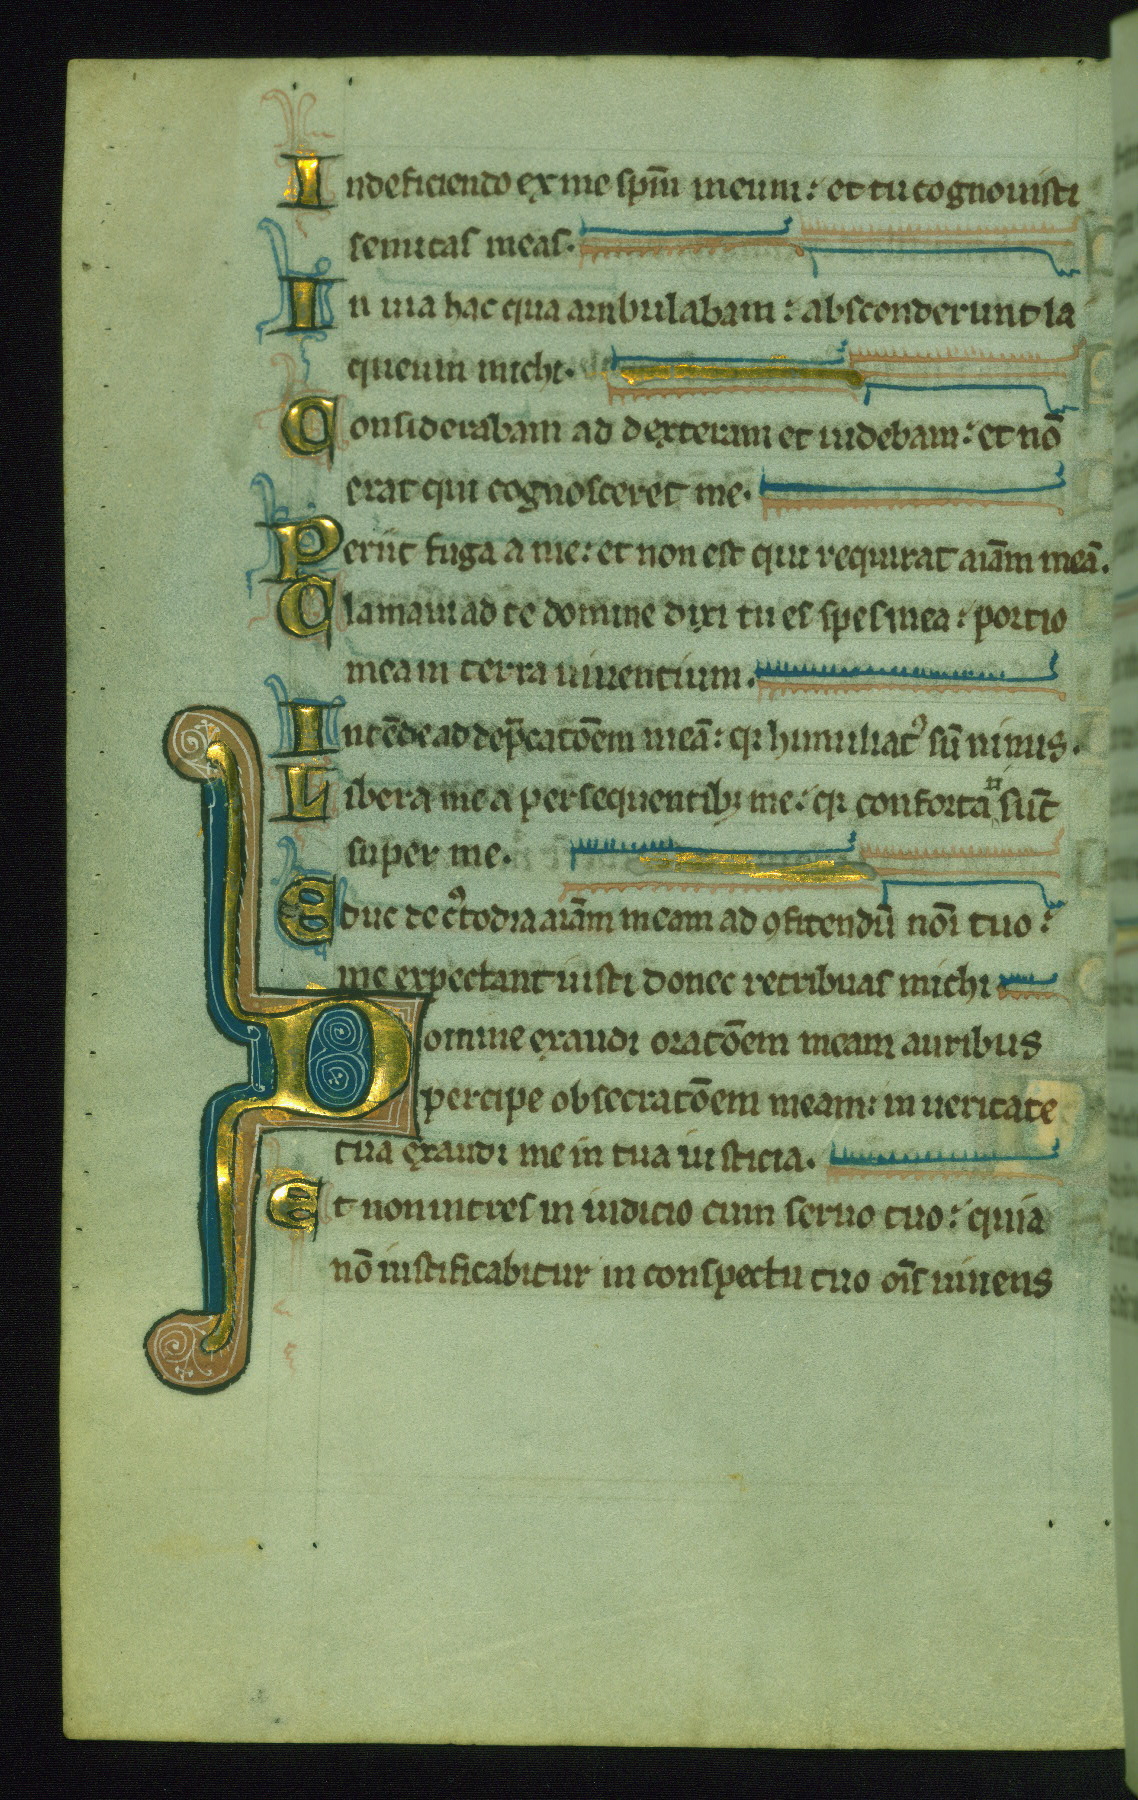 Indeficiendo ex me sp̄m meum: et tu cognouisti
semitas meas.
In uia hac qua ambulabam: absconderunt la
queum michi.
Considerabam ad dexteram et uidebam: et nō
erat qui cognosceret me.
Periit fuga a me: et non est qui requirat aīam meā.
Clamaui ad te domine dixi tu es spes mea: portio
mea in terra uiuentium.
Intēde ad dep̄catōem meā: qr humiliat᾿ sū nimis.
Libera me a persequentibꝫ me: qr conforta ͭi sūt
super me.
Educ de c᾿todia aīam meam ad ꝯfitendū nōi tuo:
me expectant iusti donec retribuas michi
Domine exaudi oratōem meam auribus
percipe obsecratōem meam: in ueritate
tua exaudi me in tua iusticia.
Et non intres in iudicio cum seruo tuo: quia
nō iustificabitur in conspectu tuo oīs uiuens